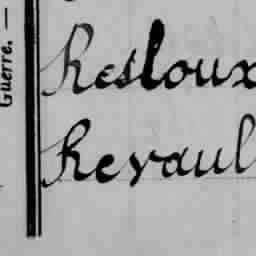 Guerre. —
Resloux
Revaul